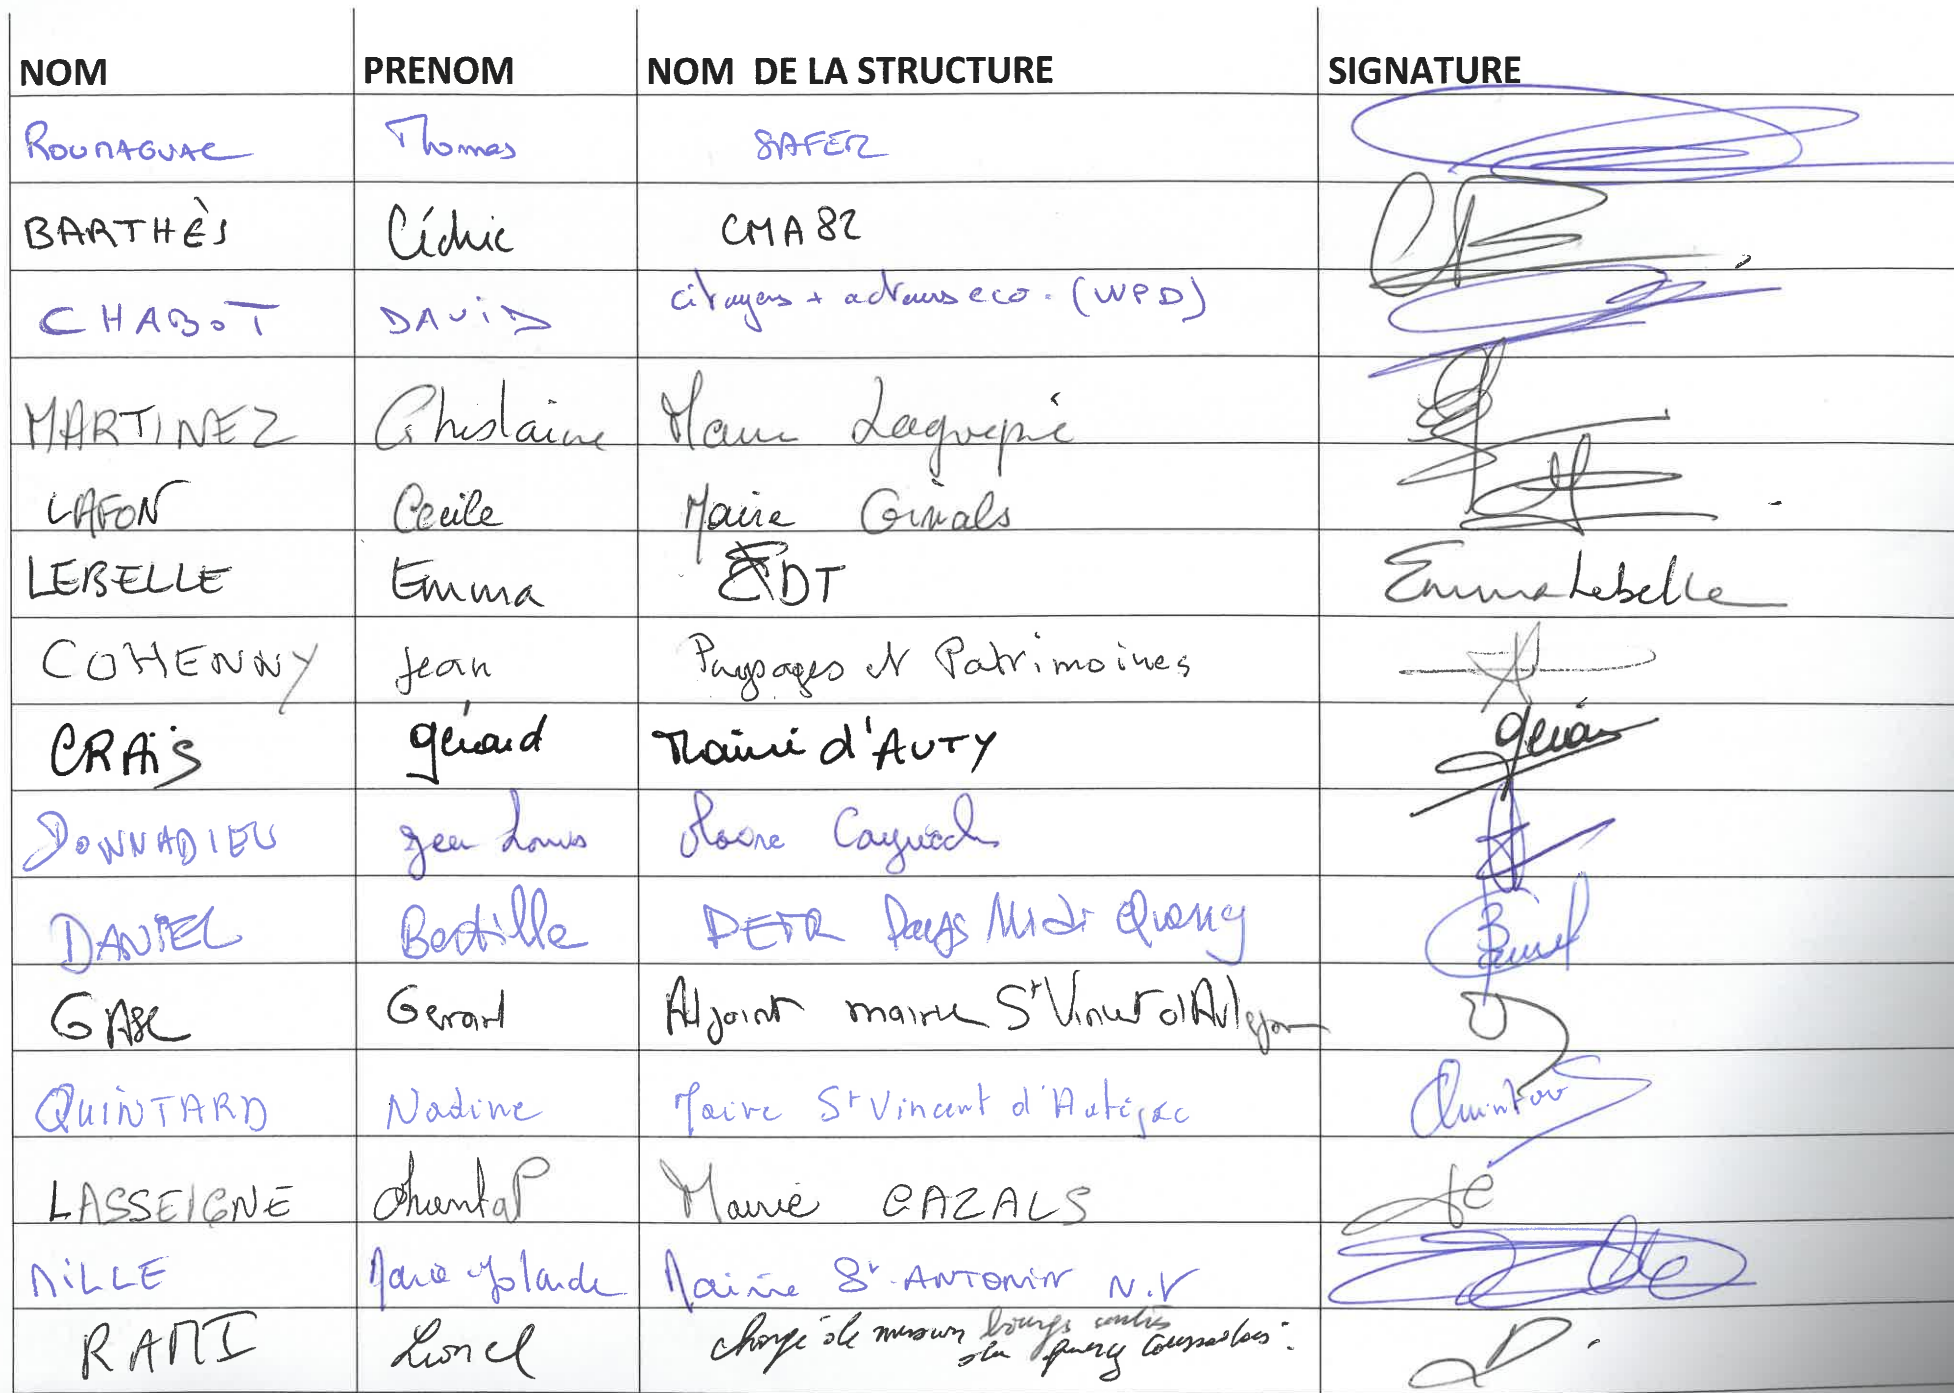 NOM PRENOM NOM DE LA STRUCTURE SIGNATURE
ROUMAGNAC Thomas SAFER
BARTHÈS Cédric CMA82
CHABOT DAVID citoyens + acteurs eco. (WPD)
MARTINEZ Ghislaine Maire Laguepie
LAFON Cecile Maire Ginals
LEBELLE Emma DT Emma Lebelle
COHENNY Jean Paysages et Patrimoines
CRAïS gérard Mairie d'AUTY gérar
DONNADIEU Jean Louis Maire
DANIEL Bertille PETR Pays Midi Quercy
GASC Gerard Adjoint mairie St Vincent d'Autejac
QUINTARD Nadine Maire St Vincent d'Autejac
LASSEIGNE Chantal Mairie CAZALS
MILLE Marie Yolande Mairie St. ANTONIN N.V
RAMI Lionel chargé de mission bourgs centres
quercy